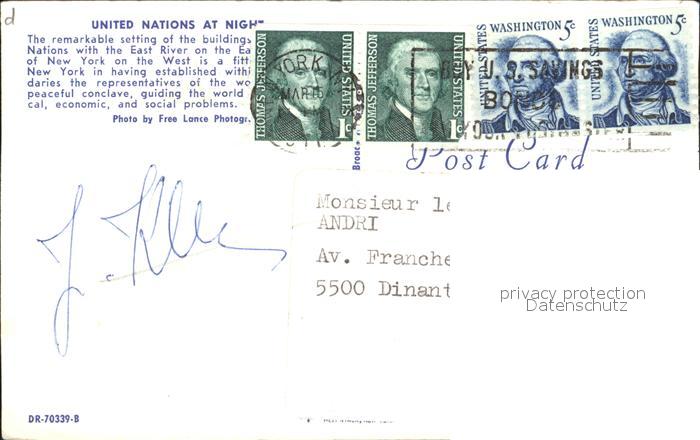 d
UNITED NATIONS AT NIGHT
The remarkable setting of the buildings
Nations with the East River on the Ea
of New York on the West is a fitt
New York in having established withi
daries the representatives of the wo
peaceful conclave, guiding the world
cal, economic, and social problems.
Photo by Free Lance Photogr
THOMAS JEFFERSON
UNITED STATES
1c
THOMAS JEFFERSON
UNITED STATES
1c
WASHINGTON 5c
UNITED STATES
WASHINGTON 5c
UNITED STATES
YORK
MAR
BUY U.S. SAVINGS
BONDS
Broad
Post Card
Monsieur le
ANDRI
Av. Franche
5500 Dinant
privacy protection
Datenschutz
DR-70339-B